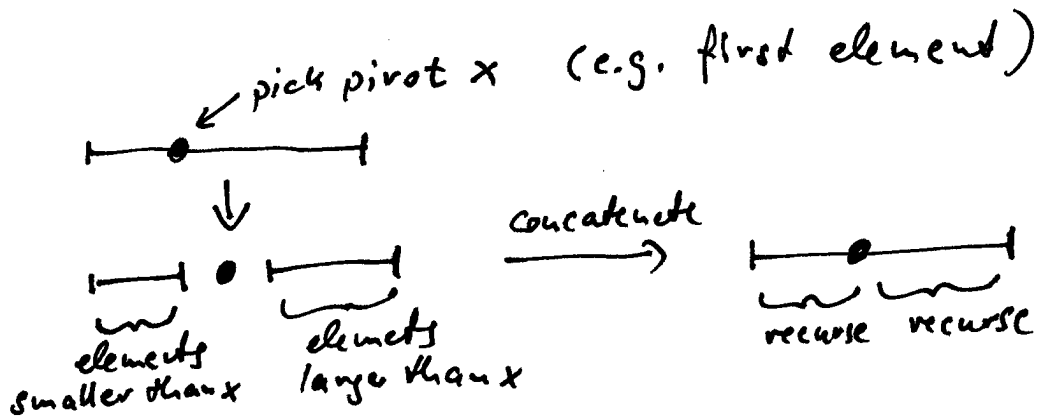 pick pivot x (e.g. first element)
concatenate
elements
smaller than x
elemets
larger than x
recurse recurse